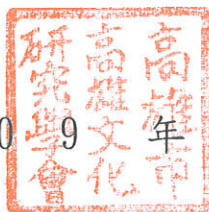 高雄市
高雄文化
研究學會
0 9 年